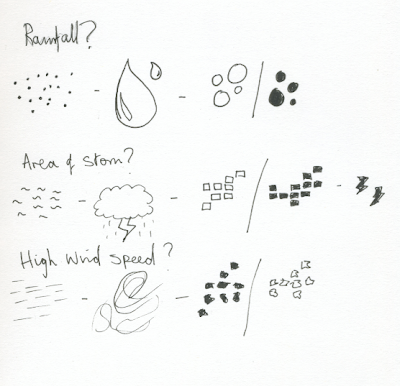 Rainfall?
Area of Storm?
High Wind Speed?